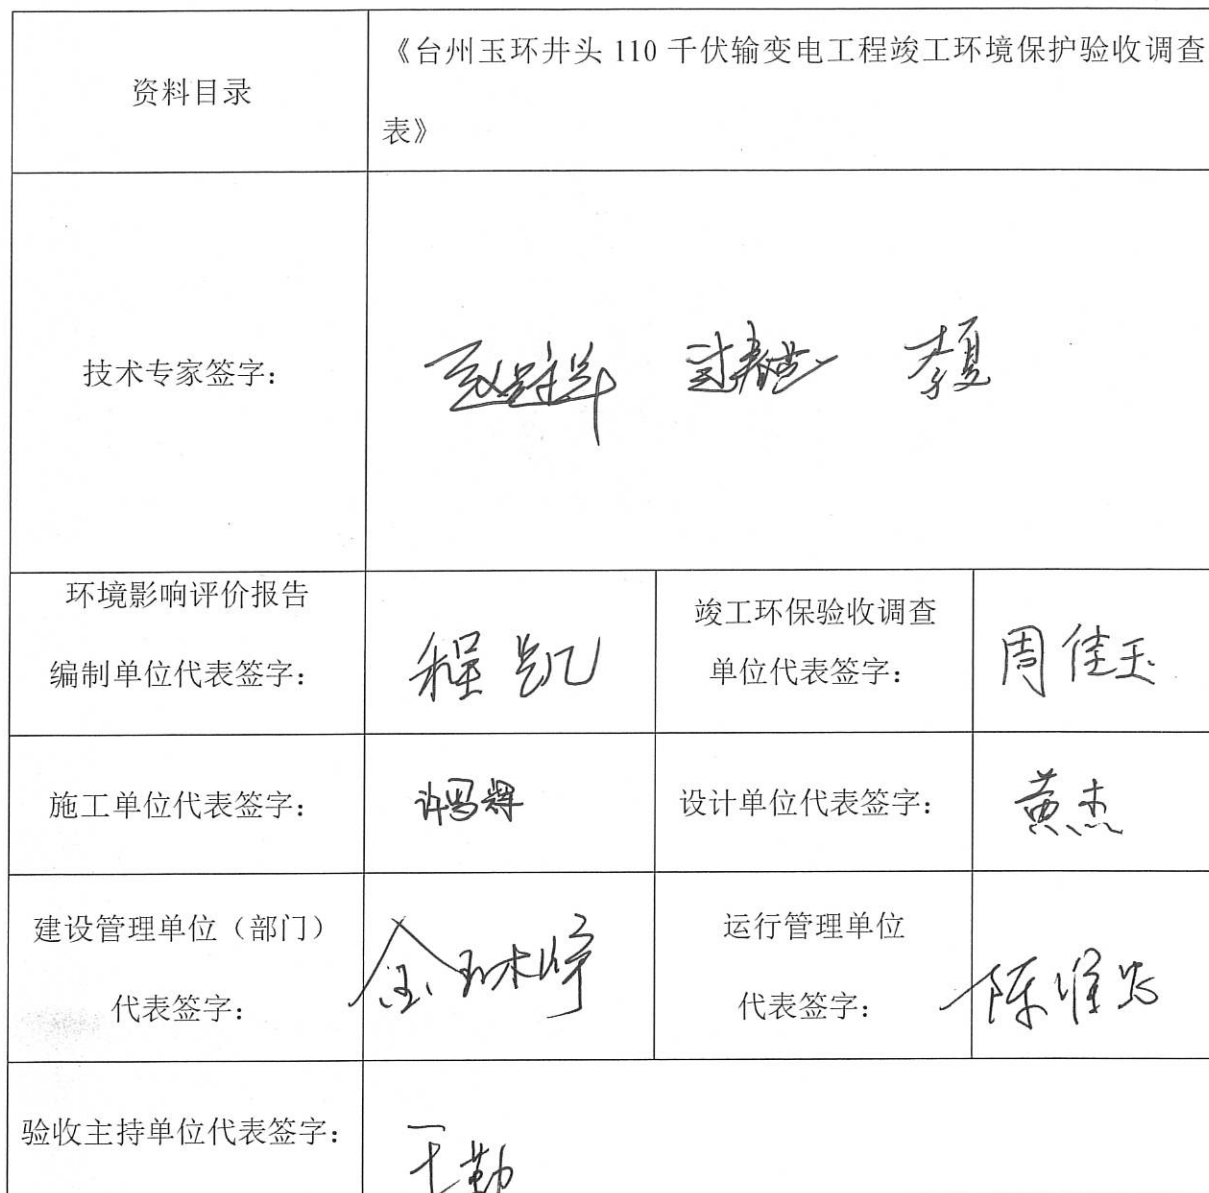 资料目录
《台州玉环井头 110 千伏输变电工程竣工环境保护验收调查
表》
技术专家签字：
李夏
环境影响评价报告
编制单位代表签字：
程凯
竣工环保验收调查
单位代表签字：
周佳玉
施工单位代表签字：
设计单位代表签字：
黄杰
建设管理单位（部门）
代表签字：
运行管理单位
代表签字：
验收主持单位代表签字：